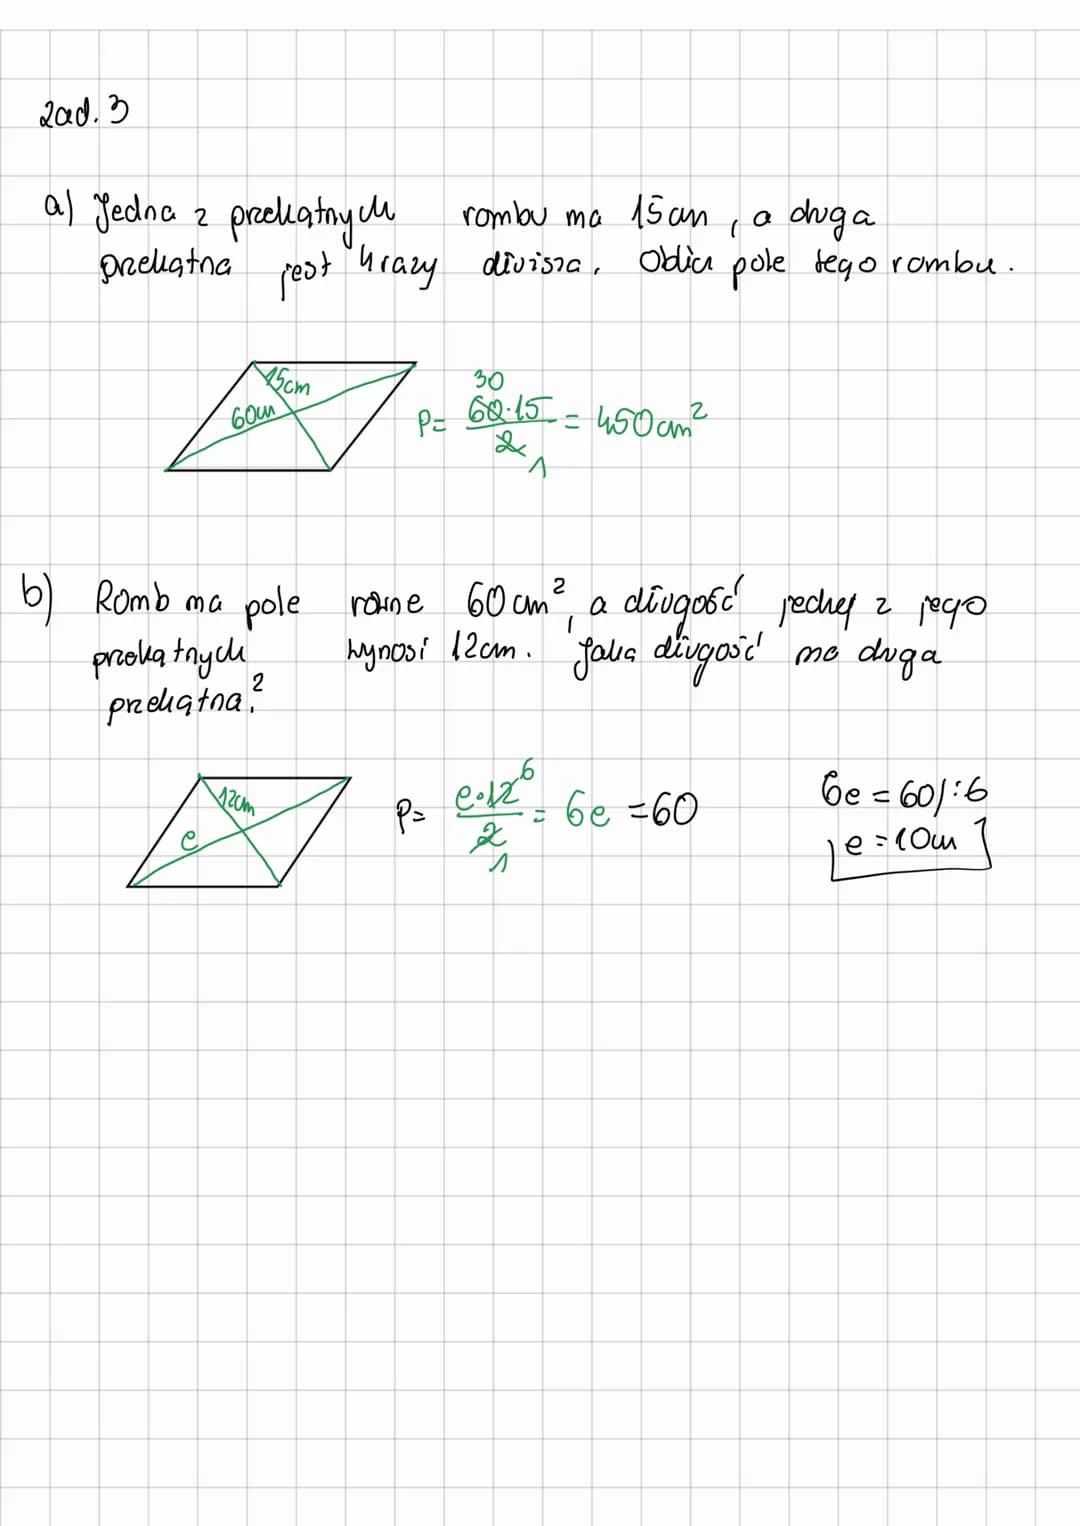 zad. 3
a) Jedna z przekątnych rombu ma 15cm, a druga
przekątna jest 4 razy dłuższa. Oblicz pole tego rombu.
15cm
60cm
30
P= 60·15 / 2 = 450cm²
1
b) Romb ma pole równe 60cm², a długość jednej z jego
przekątnych wynosi 12cm. Jaką długość ma druga
przekątna?
12cm
e
6
P= e·12 / 2 = 6e =60
1
6e = 60/:6
e = 10cm